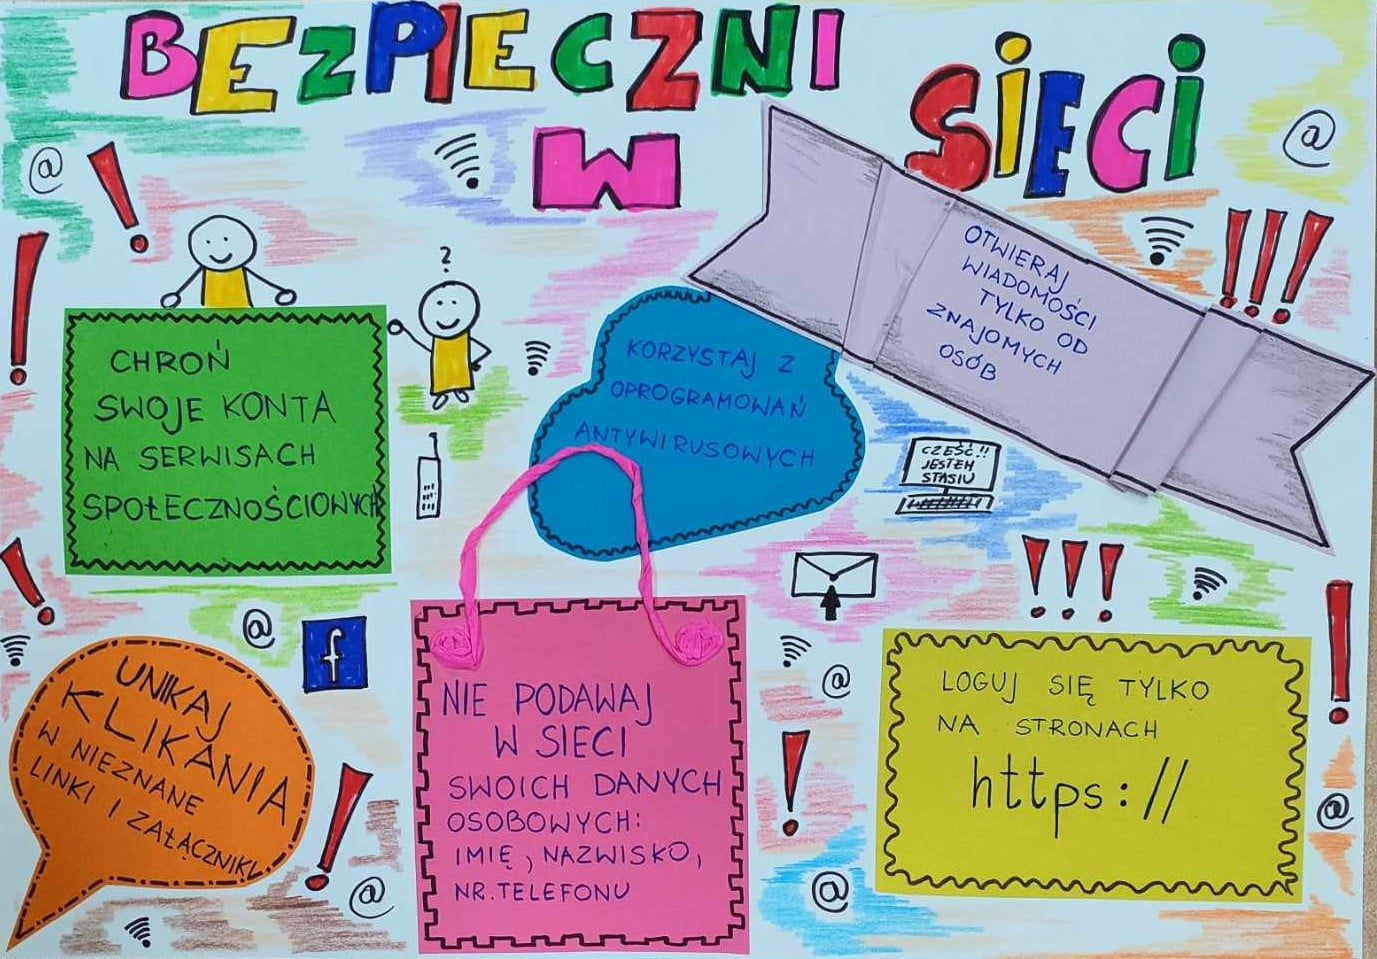 BEZPIECZNI
W
SIECI
OTWIERAJ
WIADOMOŚCI
TYLKO OD
ZNAJOMYCH
OSÓB
?
CHROŃ
SWOJE KONTA
NA SERWISACH
SPOŁECZNOŚCIOWYCH
KORZYSTAJ Z
OPROGRAMOWAŃ
ANTYWIRUSOWYCH
CZEŚĆ!!
JESTEM
STASIU
f
UNIKAJ
KLIKANIA
W NIEZNANE
LINKI I ZAŁĄCZNIKI
NIE PODAWAJ
W SIECI
SWOICH DANYCH
OSOBOWYCH:
IMIĘ, NAZWISKO,
NR.TELEFONU
LOGUJ SIĘ TYLKO
NA STRONACH
https://